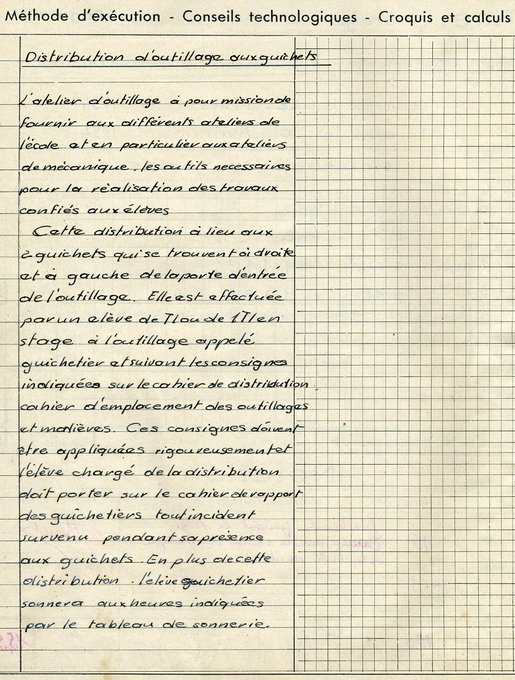 Méthode d'exécution - Conseils technologiques - Croquis et calculs
Distribution d'outillage aux guichets
L'atelier d'outillage à pour mission de
fournir aux différents ateliers de
l'école et en particulier aux ateliers
de mécanique, les outils necessaires
pour la réalisation des travaux
confiés aux élèves
Cette distribution à lieu aux
2 guichets qui se trouvent à droite
et à gauche de la porte d'entrée
de l'outillage. Elle est effectuée
par un élève de T1 ou de 1T1 en
stage à l'outillage appelé
guichetier et suivant les consignes
indiquées sur le cahier de distribution
cahier d'emplacement des outillages
et matières. Ces consignes doivent
être appliquées rigoureusement et
l'élève chargé de la distribution
doit porter sur le cahier de rapport
des guichetiers tout incident
survenu pendant sa présence
aux guichets. En plus de cette
distribution. l'élève guichetier
sonnera aux heures indiquées
par le tableau de sonnerie.